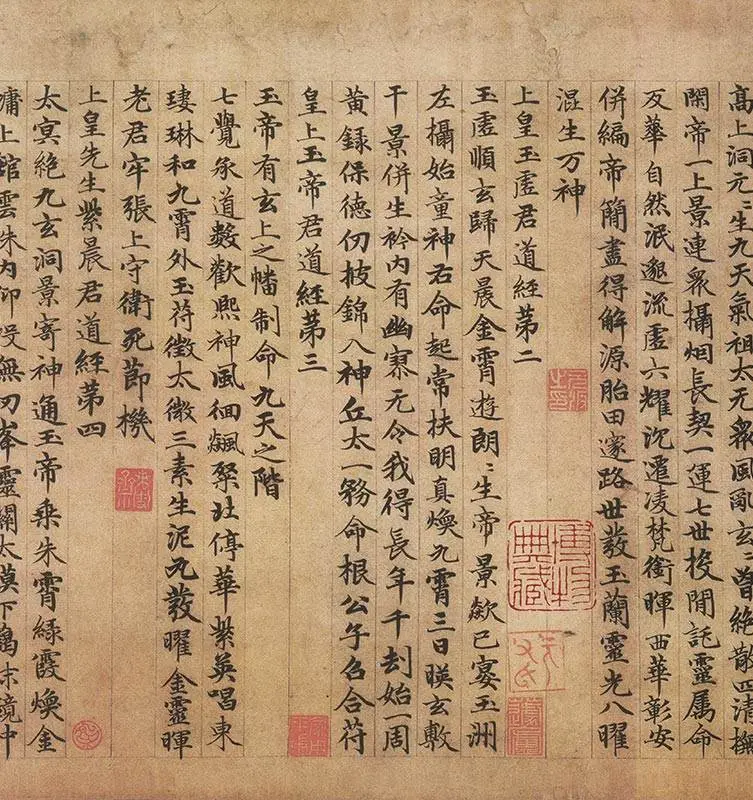 高上洞元〻生九天氣祖太无衆風亂玄曾絶散四清撫
開帝一上景連衆攝烟長契一運七世投閒託靈属命
反華自然泯邈流虚六耀沈遷凌梵銜暉西華彰安
併編帝簡盡得解源胎田邃路世發玉蘭靈光八曜
混生万神
上皇玉虚君道經苐二
玉虚順玄歸天晨金霄遊朗〻生帝景歘已宴玉洲
左攝始童神右命起常扶明真煥九霄三日暎玄敷
千景併生衿内有幽寥无令我得長年千刧始一周
黄録保德仞披錦八神丘太一務命根公子名合苻
皇上玉帝君道經苐三
玉帝有玄上之幡制命九天之階
七覺永道數歡熈神風徊飈北停華紫英唱東
琳和九霄外玉苻徵太微三素生泥丸發曜金靈暉
老君牢張上守衛死節機
上皇先生紫晨君道經苐四
太冥絶九玄洞景寄神通玉帝乘朱霄緑霞煥金
墉上館雲朱内仰投無刃峯靈闗太漠下藹沫鏡中
博物典藏